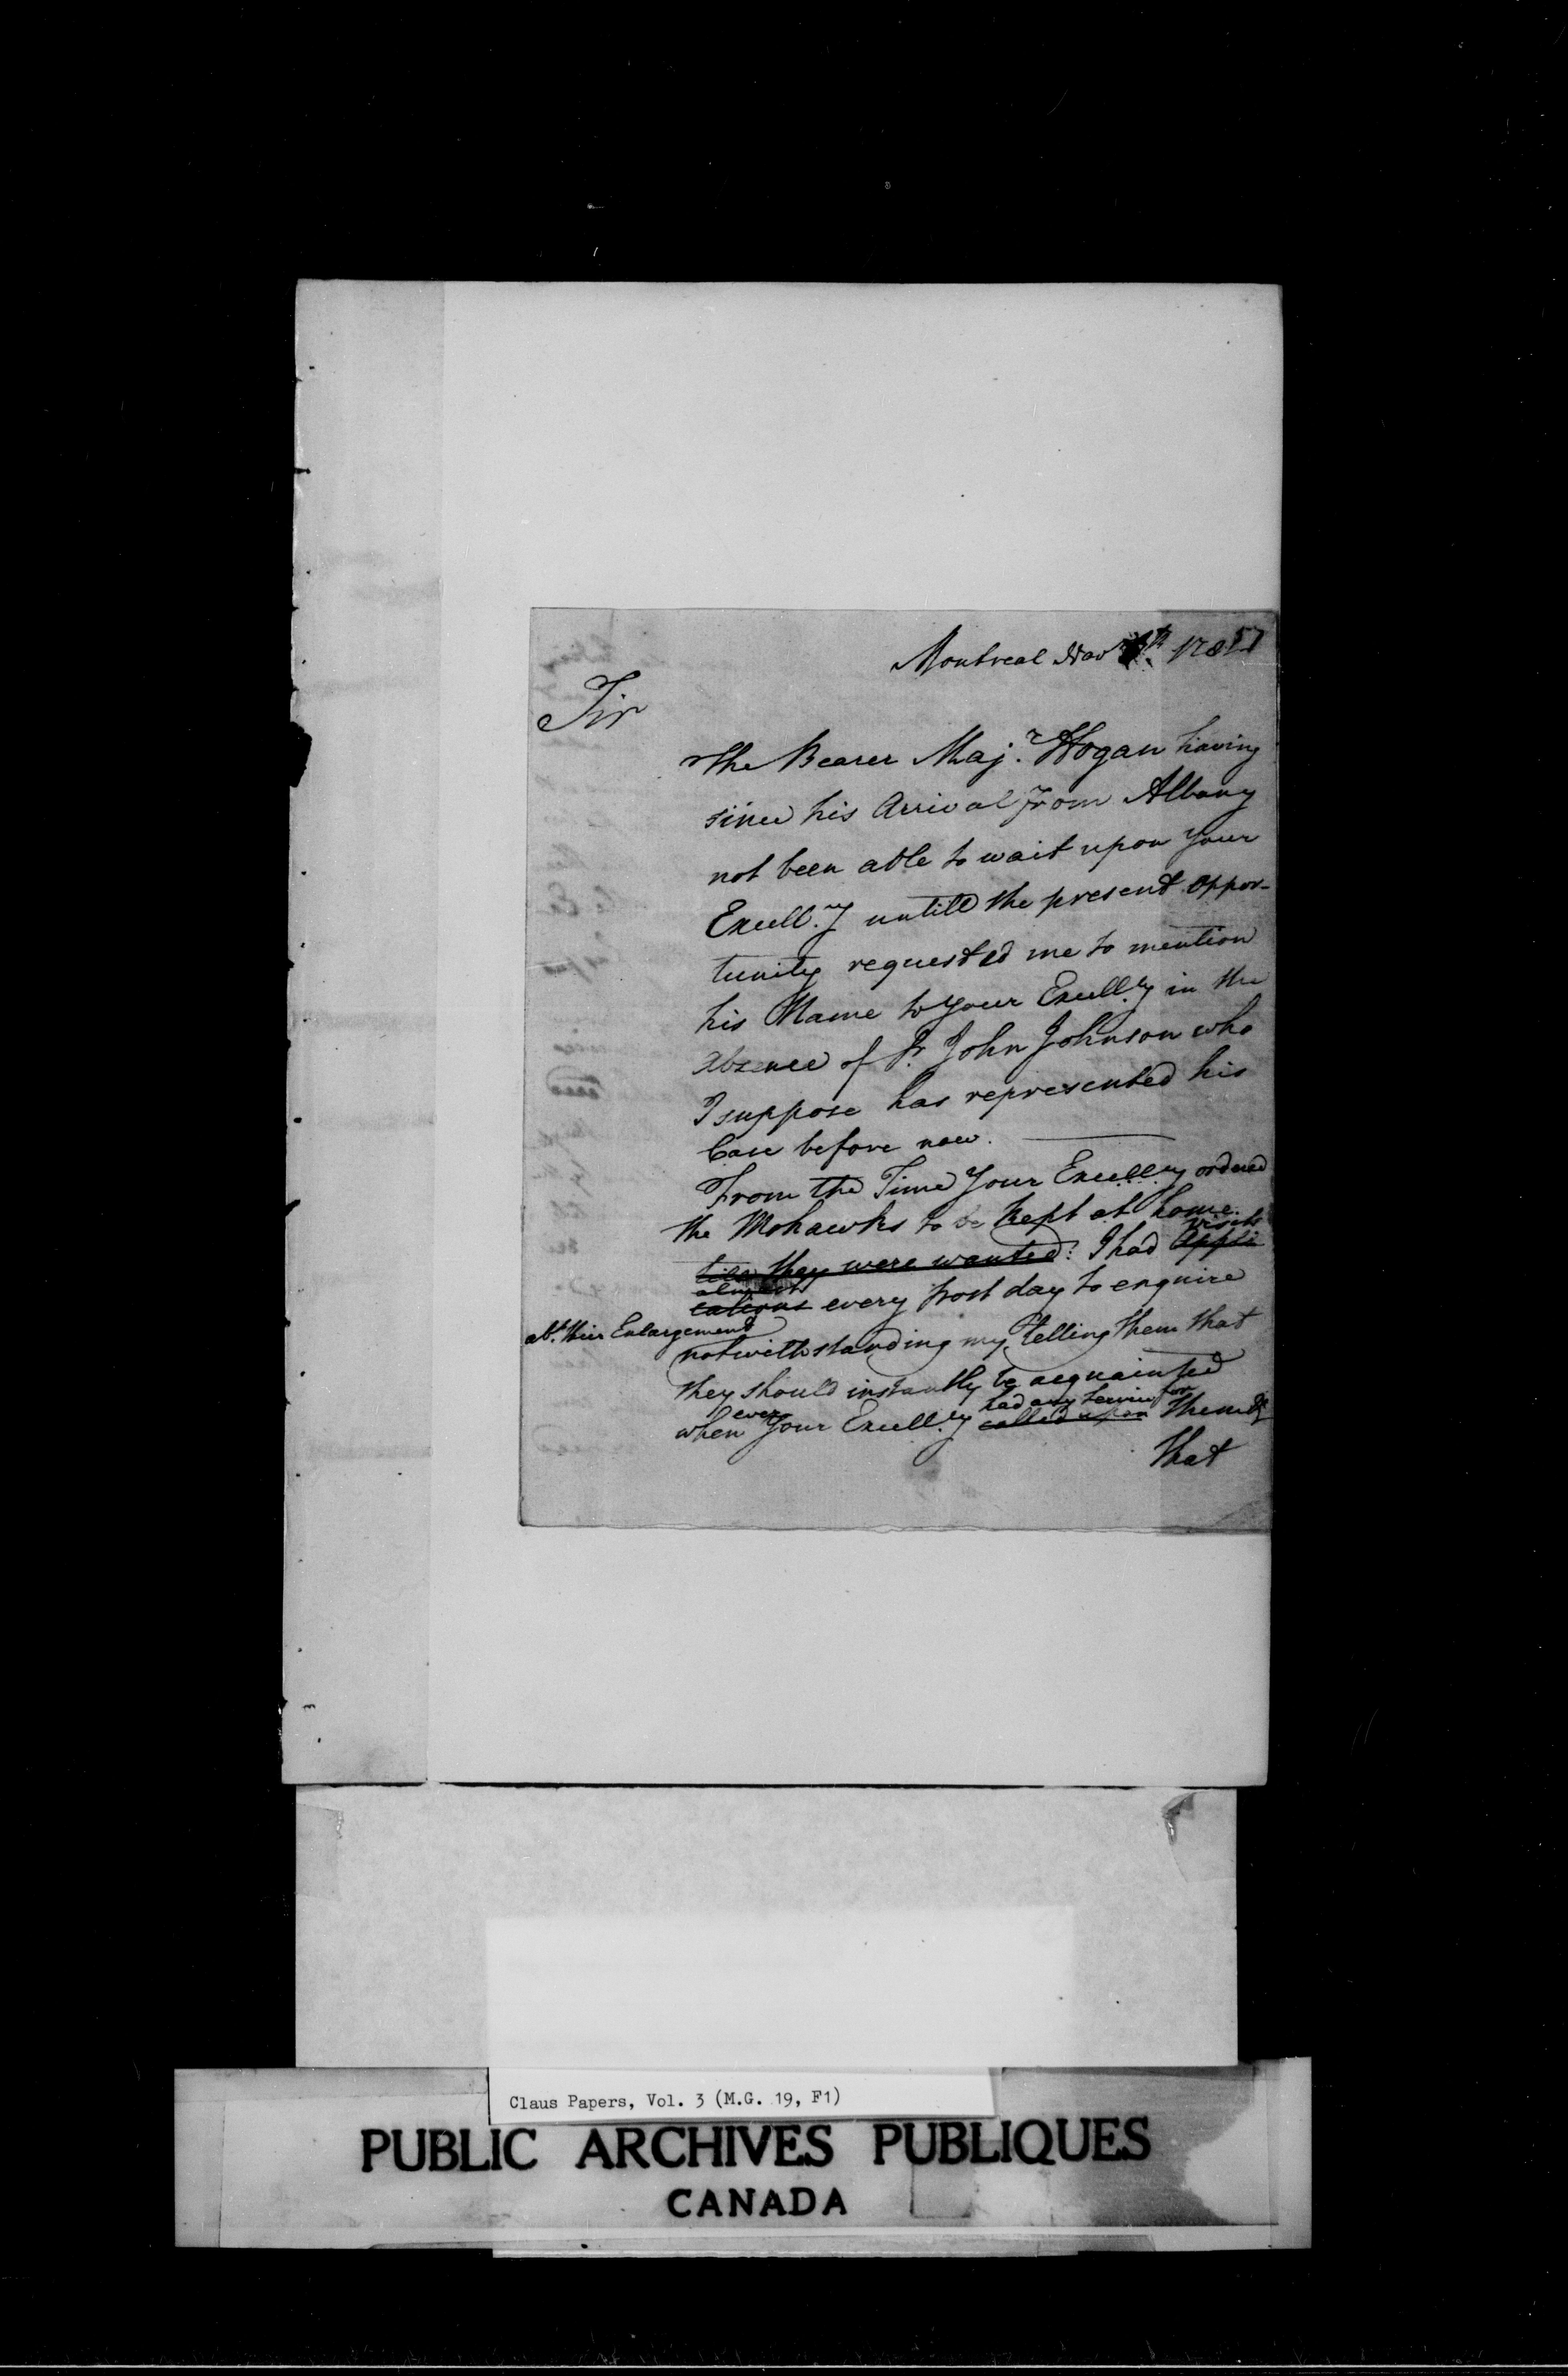 Montreal Nov.r 178
57
Sir
The Bearer Maj.r Hogan having
since his Arrival from Albany
not been able to wait upon Your
Excell.cy untill the present oppor-
tunity requested me to mention
his Name to Your Excell.cy in the
absence of Sr. John Johnson who
I suppose has represented his
Case before now.
From the Time Your Excell.cy ordered
the Mohawks to be kept at home.
till they were wanted: I had Appli visits
cations almost every post day to enquire
abt. their Enlargement
notwithstanding my telling them that
they should instantly be acquainted
when ever Your Excell.cy called upon had any Service for them &
that
Claus Papers, Vol. 3 (M.G. 19, F1)
PUBLIC ARCHIVES PUBLIQUES
CANADA